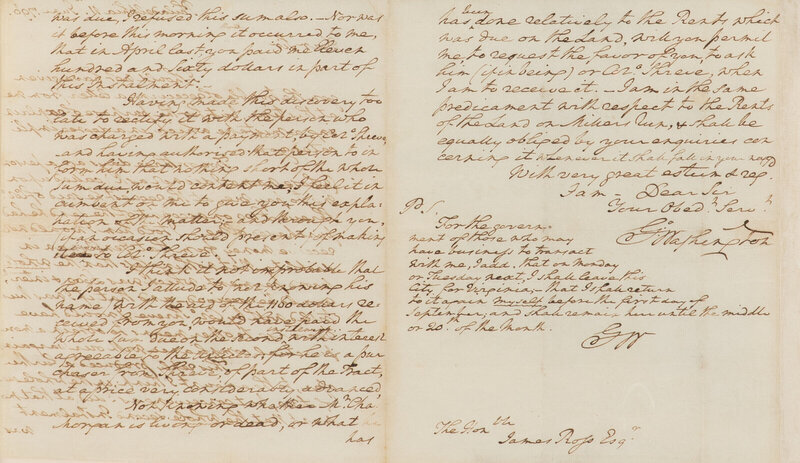 was due, I refused this sum also. – Nor was
it before this morning it occurred to me,
that in April last you paid me eleven
hundred and Sixty dollars in part of
this Instalment.
Having made this discovery too
late to rectify it with the person who
was charged with a payment by Colo. Shreve,
and having authorised that person to in
form him that nothing short of the whole
Sum due, would content me, I feel it in
cumbent on me to give you this expla-
nation of the matter; and through you,
if an occasion should present, of making
it so to Colo. Shreve.
I think it not improbable that
the person I allude to (not knowing his
name) with the aid of the 1160 dollars re
ceived from you would have paid the
whole Sum due on the second with interest
agreeable to the; for he is a pur
chaser from Shreve, of part of the Tract,
at a price very considerably advanced
Not knowing whether Mr. Chas.
Morgan is living or dead, or what
has
been
has done relatively to the Rents which
was due on the Land, will you permit
me, to request the favor of you, to ask
him (if in being) or Colo. Shreve, when
I am to receive it. – I am in the same
predicament with respect to the Rents
of the Land on Millers run, & shall be
equally obliged by your enquiries con
cerning it whenever it shall fall in your way
With very great esteem & reg.
I am – Dear Sir
Your Obedt. Servt.
Go Washington
P.S.
For the govern-
ment of those who may
have business to transact
with me, I add, that on Monday
or Tuesday next, I shall leave this
City, for Virginia; – that I shall return
to it again myself before the first day of
September; and shall remain here until the middle
or 20th. of the Month.
GW
The Honble
James Ross Esqr.